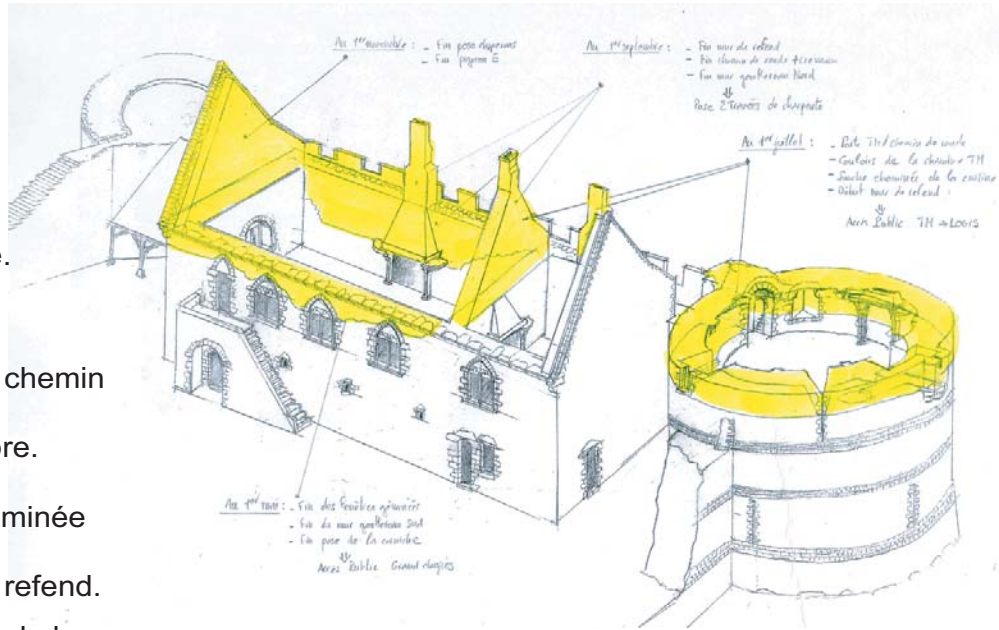 Au 1er novembre : - Fin pose chaperons
- Fin pignon E
Au 1er septembre : - Fin mur de refend
- Fin chemin de ronde + créneaux
- Fin mur gouttereau Nord
⇓
Pose 2 Travées de charpente
Au 1er juillet : - Porte TM / chemin de ronde
- Couloirs de la chambre TM
- Souche cheminée de la cuisine
- Début mur de refend
⇓
Accès Public TM → LOGIS
e.
chemin
re.
minée
refend.
Au 1er mai : - Fin des fenêtres géminées
- Fin du mur gouttereau Sud
- Fin pose de la corniche
⇓
Accès Public Grand logis